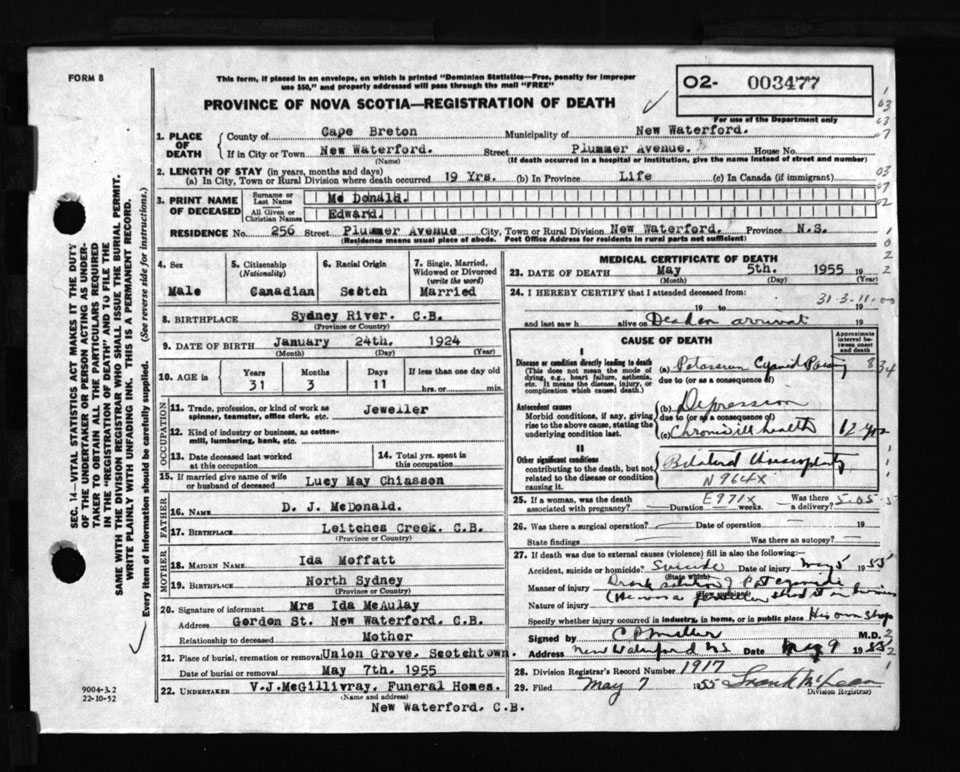 FORM 8
This form, if placed in an envelope, on which is printed "Dominion Statistics—Free, penalty for improper
use $50," and properly addressed will pass through the mail "FREE"
O2- 003477
For use of the Department only
PROVINCE OF NOVA SCOTIA—REGISTRATION OF DEATH
1. PLACE OF DEATH
County of Cape Breton Municipality of New Waterford.
If in City or Town New Waterford. Street Plummer Avenue. House No.
(Name) (If death occurred in a hospital or institution, give the name instead of street and number)
2. LENGTH OF STAY (in years, months and days)
(a) In City, Town or Rural Division where death occurred 19 Yrs. (b) In Province Life (c) In Canada (if immigrant)
3. PRINT NAME OF DECEASED
Surname or Last Name Mc Donald.
All Given or Christian Names Edward.
RESIDENCE No. 256 Street Plummer Avenue City, Town or Rural Division New Waterford. Province N.S.
(Residence means usual place of abode. Post Office Address for residents in rural parts not sufficient)
4. Sex
Male
5. Citizenship
(Nationality)
Canadian
6. Racial Origin
Scotch
7. Single, Married, Widowed or Divorced
(write the word)
Married
8. BIRTHPLACE Sydney River. C.B.
(Province or Country)
9. DATE OF BIRTH January 24th. 1924
(Month) (Day) (Year)
10. AGE in
Years Months Days If less than one day old
31 3 11 hrs. or min.
OCCUPATION
11. Trade, profession, or kind of work as
spinner, teamster, office clerk, etc. Jeweller
12. Kind of industry or business, as cotton-
mill, lumbering, bank, etc.
13. Date deceased last worked
at this occupation
14. Total yrs. spent in
this occupation
15. If married give name of wife
or husband of deceased Lucy May Chiasson
FATHER
16. NAME D. J. McDonald.
17. BIRTHPLACE Leitches Creek. C.B.
(Province or Country)
MOTHER
18. MAIDEN NAME Ida Moffatt
19. BIRTHPLACE North Sydney
(Province or Country)
20. Signature of informant Mrs Ida McAulay
Address Gordon St. New Waterford. C.B.
Relationship to deceased Mother
21. Place of burial, cremation or removal Union Grove. Scotchtown.
Date of burial or removal May 7th. 1955
22. UNDERTAKER V.J.McGillivray. Funeral Homes.
(Name and address)
New Waterford. C.B.
MEDICAL CERTIFICATE OF DEATH
23. DATE OF DEATH May 5th. 1955 19
(Month) (Day) (Year)
24. I HEREBY CERTIFY that I attended deceased from:
31-3-11-00
19 to 19
and last saw h alive on Dead on arrival 19
CAUSE OF DEATH
Approximate interval between onset and death
I
Disease or condition directly leading to death
(This does not mean the mode of
dying, e.g., heart failure, asthenia,
etc. It means the disease, injury, or
complication which caused death.)
(a) Potassium Cyanid Poisong
due to (or as a consequence of)
Antecedent causes
Morbid conditions, if any, giving
rise to the above cause, stating the
underlying condition last.
(b) Depression
due to (or as a consequence of)
(c) Chronic ill health 12 yrs
II
Other significant conditions
contributing to the death, but not
related to the disease or condition
causing it.
Bilateral
N964X
E971X
25. If a woman, was the death
associated with pregnancy? Duration weeks. Was there
a delivery?
26. Was there a surgical operation? Date of operation 19
State findings Was there an autopsy?
27. If death was due to external causes (violence) fill in also the following:—
Accident, suicide or homicide? Suicide Date of injury May 5 1955
(State which)
Manner of injury Drank solution of Pot cyanide
Nature of injury (He was a jeweller, used it in business
Specify whether injury occurred in industry, in home, or in public place His own shop
Signed by C D Miller M.D.
Address New Waterford N.S Date May 9 1955
28. Division Registrar's Record Number 1917
29. Filed May 7 1955 Frank McLean
Division Registrar
SEC. 14—VITAL STATISTICS ACT MAKES IT THE DUTY
OF THE UNDERTAKER OR PERSON ACTING AS UNDER-
TAKER TO OBTAIN ALL THE PARTICULARS REQUIRED
IN THE "REGISTRATION OF DEATH" AND TO FILE THE
SAME WITH THE DIVISION REGISTRAR WHO SHALL ISSUE THE BURIAL PERMIT.
WRITE PLAINLY WITH UNFADING INK. THIS IS A PERMANENT RECORD.
Every item of information should be carefully supplied. (See reverse side for instructions.)
9004-3.2
22-10-52